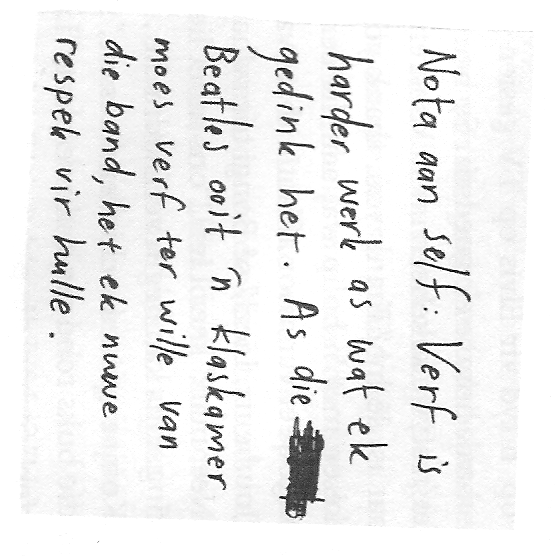 Nota aan self: Verf is
harder werk as wat ek
gedink het. As die
Beatles ooit 'n klaskamer
moes verf ter wille van
die band, het ek nuwe
respek vir hulle.